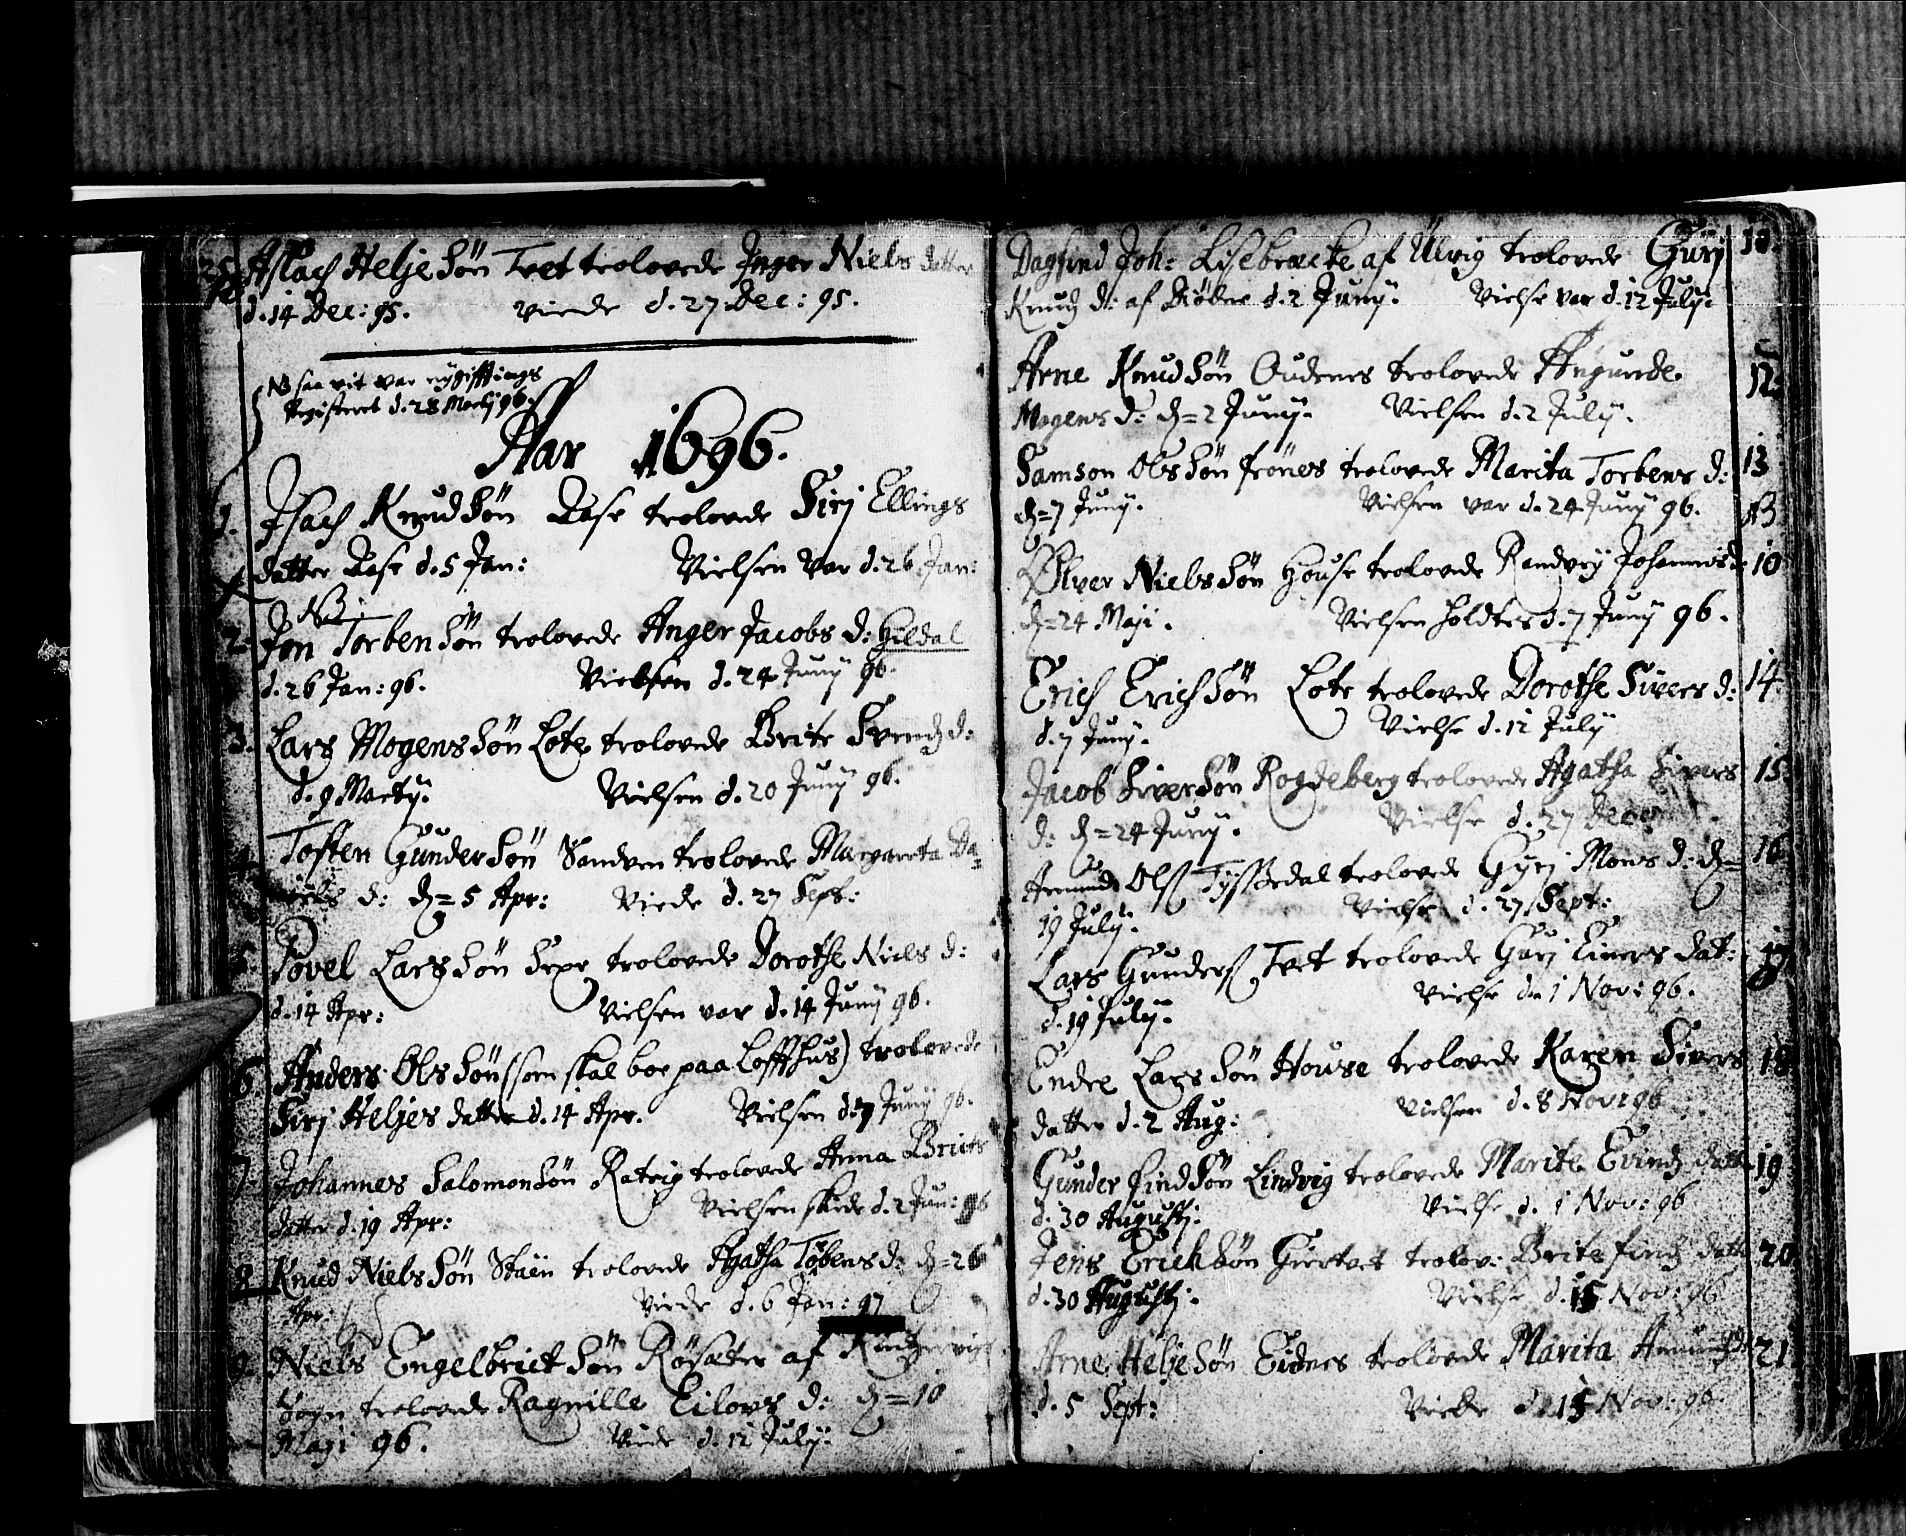 25. Aslach Heljesön Tvet trolovede Inger Niels datter
d. 14 Dec: 95. Viede d. 27 Dec: 95.
NB saa vit var
Registeret d. 28 Martij 96.
Aar 1696.
1. Isach Knudsön Aase trolovede Sirj Ellings
datter Aase d. 5 Jan: Vielsen var d. 26 Jan:
NB
2. Jon Torbensön trolovede Anger Jacobs d: Hildal
d. 26 Jan: 96. Vielsen d. 24 Junij 96.
3. Lars Mogenssön Lote trolovede Brite Svends d:
d. 9 Martij. Vielsen d. 20 Junij 96.
4. Tosten Gundersön Sandven trolovede Margareta Da=
niels d: d= 5 Apr: Viede d. 27 Sept:
5. Povel Larssön Sexe trolovede Dorothe Niels d:
d. 14 Apr: Vielsen var d. 14 Junij 96.
6. Anders Olssön (som skal boe paa Loffthus) trolovede
Sirj Heljes datter d. 14 Apr. Vielsen d. 7 Junij 96.
7. Johannes Salomonsön Ratvig trolovede Anna Briets
datter d. 19 Apr: Vielsen skede d. 2 Jun: 96
8. Knud Nielssön Staën trolovede Agatha Tobens d: d= 26
Apr: Viede d. 6 Jan: 97
9. Niels Engelbrictsön Rösæter af Kintzervigs
Sogn trolovede Ragnille Eilovs d: d= 10
Maji 96. Viede d. 12 Julij.
Dagfind Joh: Lisebrecke af Ulvig trolovede Gurj 10.
Knuds d: af d. 2 Junij. Vielse var d. 12 Julij.
Arne Knudsön Oudenes trolovede Angunde 12.
Mogens d: d= 2 Junij. Vielsen d. 2 Julij.
Samson Olssön frönes trolovede Marita Torbens d: 13
d= 7 Junij. Vielsen var d. 24 Junij 96. 13.
Ølver Nielssön House trolovede Randvey Johannis d: 10
d= 24 Maji. Vielsen holdtes d. 7 Junij 96.
Erich Erichsön Lote trolovede Dorothe Sivers d: 14.
d. 7 Junij. Vielse d. 12 Julij
Jacob Siversön Rogdeberg trolovede Agatha Sivers 15.
d: d= 24 Junij. Vielse d. 27 Dec
Amund Olss Tyssedal trolovede Gyrj Mons d: d= 16
19 Julij. Vielse d. 27 Sept:
Lars Gunderss Tvet trolovede Gurj Einers dat: 17
d. 19 Julij. Vielse d. 1 Nov: 96.
Endre Larssön House trolovede Karen Sivers 18
datter d. 2 Aug: Vielsen d. 8 Nov: 96
Gunder findsön Lindvig trolovede Marite Evinds datt: 19
d. 30 Augustj. Vielse d. 1 Nov: 96
Jens Ericksön Giertvet trolov: Brite finds datt: 20
d. 30 Augustj. Vielse d. 15 Nov: 96
Arne Heljesön Eidnes trolovede Marita Amunds d: 21
d. 5 Sept: Vielse d. 15 Nov: 96.